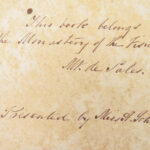 This book belongs
the Monastery of the
Mt. de Sales.
Presented by Miss A.